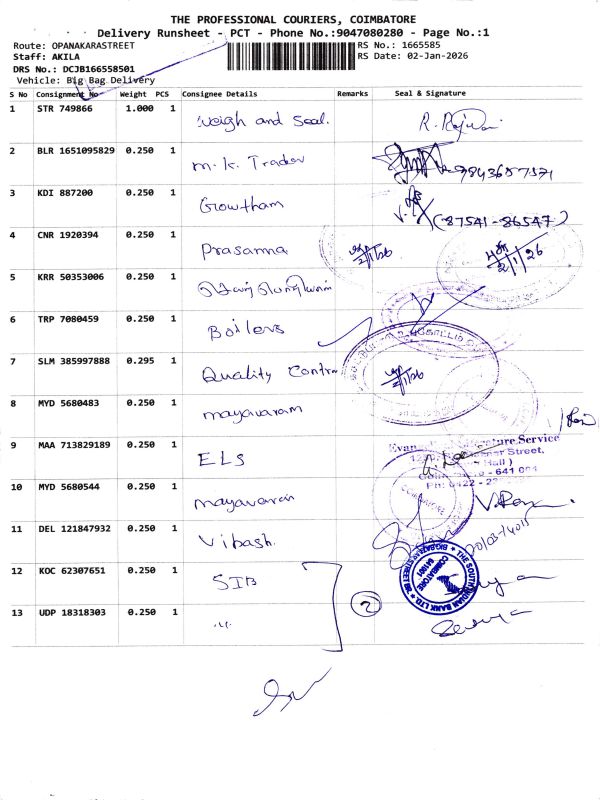 THE PROFESSIONAL COURIERS, COIMBATORE
Delivery Runsheet - PCT - Phone No.:9047080280 - Page No.:1
Route: OPANAKARASTREET
RS No.: 1665585
Staff: AKILA
RS Date: 02-Jan-2026
DRS No.: DCJB166558501
Vehicle: Big Bag Delivery
S No Consignment No Weight PCS Consignee Details Remarks Seal & Signature
1 STR 749866 1.000 1 Weigh and Seal.
2 BLR 1651095829 0.250 1 M. K. Trader
3 KDI 887200 0.250 1 Growtham
(87541-86547)
4 CNR 1920394 0.250 1 Prasanna
2/1/26
2/1/26
5 KRR 50353006 0.250 1
6 TRP 7080459 0.250 1 Boilers
7 SLM 385997888 0.295 1 Quality Contro
2/1/26
8 MYD 5680483 0.250 1 mayavaram
9 MAA 713829189 0.250 1 ELS
10 MYD 5680544 0.250 1 mayavaram
11 DEL 121847932 0.250 1 Vibash
12 KOC 62307651 0.250 1 SIB
THE SOUTH INDIAN BANK LTD.
COIMBATORE
13 UDP 18318303 0.250 1 "
2